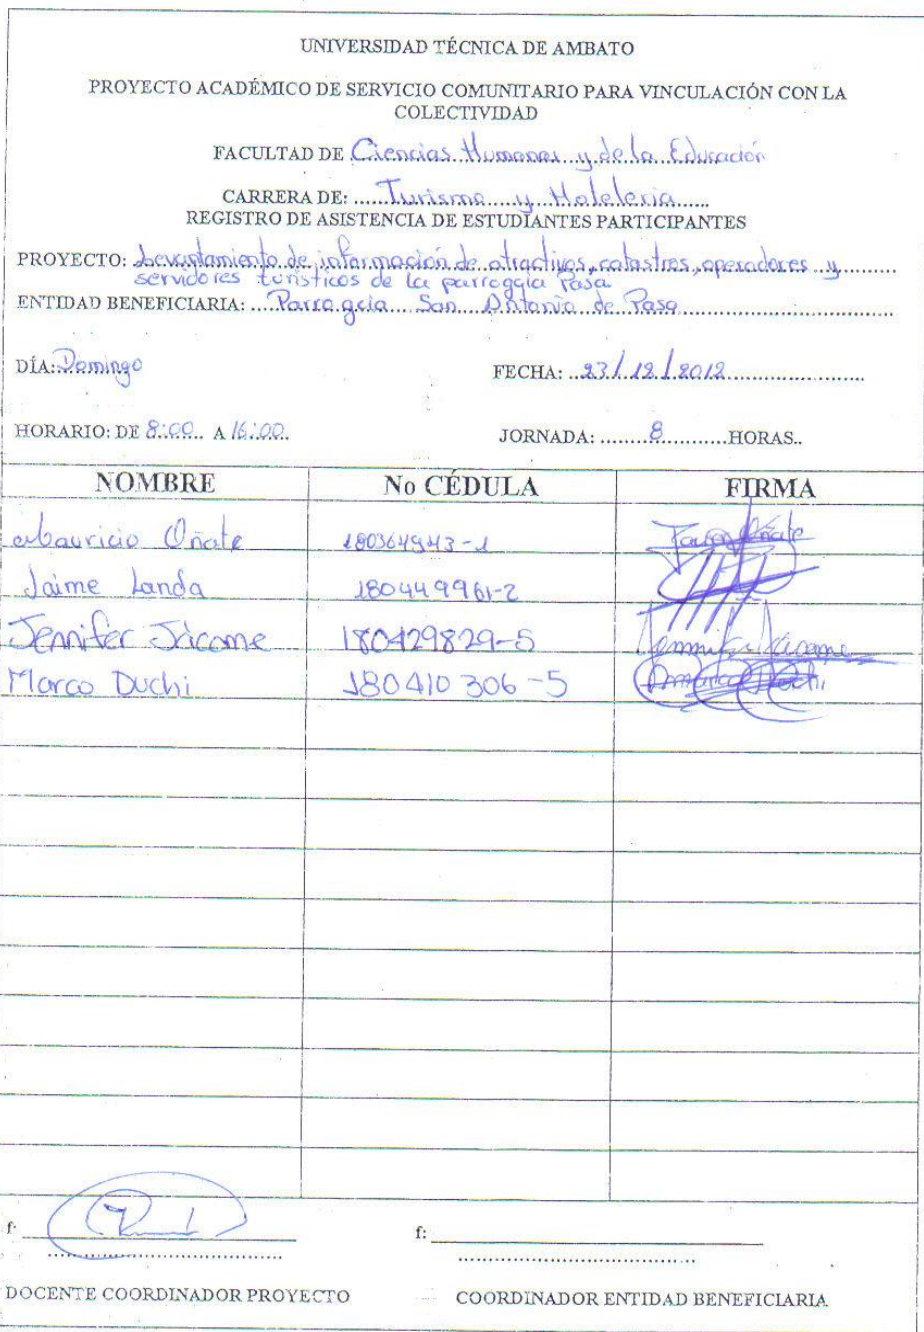 UNIVERSIDAD TÉCNICA DE AMBATO
PROYECTO ACADÉMICO DE SERVICIO COMUNITARIO PARA VINCULACIÓN CON LA
COLECTIVIDAD
FACULTAD DE Ciencias Humanas y de la Educación
CARRERA DE: Turismo y Hotelería
REGISTRO DE ASISTENCIA DE ESTUDIANTES PARTICIPANTES
PROYECTO: Levantamiento de información de atractivos, catastros, operadores y
servidores turísticos de la parroquia Pasa
ENTIDAD BENEFICIARIA: Parroquia San Antonio de Pasa
DÍA: Domingo FECHA: 23/12/2012
HORARIO: DE 8:00 A 16:00 JORNADA: 8 HORAS..
NOMBRE No CÉDULA FIRMA
Mauricio Oñate 180364943-1
Jaime Landa 180449961-2
Jennifer Jácome 180429829-5 Jennifer Jácome
Marco Duchi 180410306-5 Marco Duchi
f: f:
DOCENTE COORDINADOR PROYECTO COORDINADOR ENTIDAD BENEFICIARIA